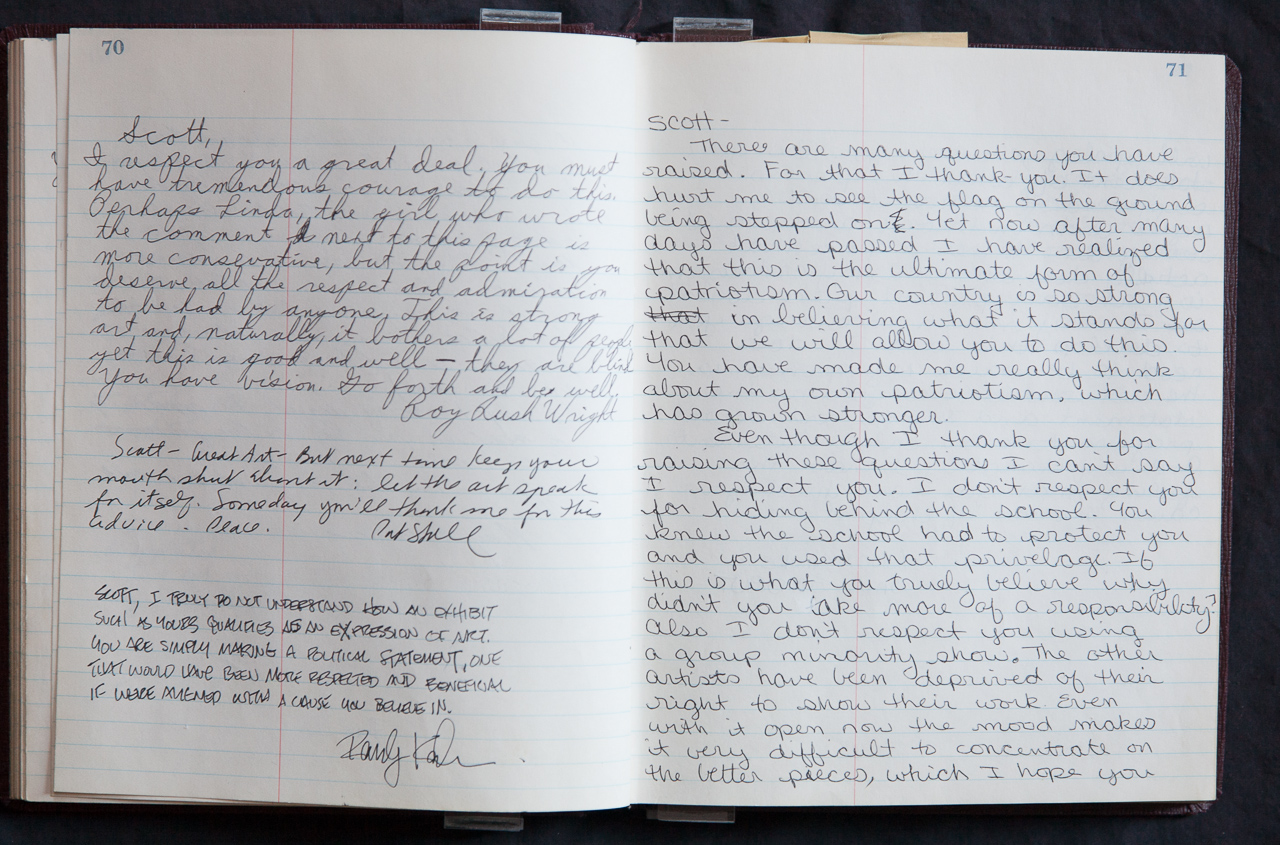 70
Scott,
I respect you a great deal. You must
have tremendous courage to do this.
Perhaps Linda, the girl who wrote
the comment next to this page is
more consevative, but the point is you
deserve all the respect and admiration
to be had by anyone. This is strong
art and, naturally, it bothers a lot of people
yet this is good and well — they are blind
You have vision. Go forth and be well,
Roy Rush Wright
Scott - Great Art - But next time keep your
mouth shut about it: let the art speak
for itself. Someday you'll thank me for this
advice - Peace.
SCOTT, I TRULY DO NOT UNDERSTAND HOW AN EXHIBIT
SUCH AS YOURS QUALIFIES AS AN EXPRESSION OF ART.
YOU ARE SIMPLY MAKING A POLITICAL STATEMENT, ONE
THAT WOULD HAVE BEEN MORE RESPECTED AND BENEFICIAL
IF WERE ALIGNED WITH A CAUSE YOU BELIEVE IN.
Randy
71
SCOTT -
There are many questions you have
raised. For that I thank you. It does
hurt me to see the flag on the ground
being stepped on. Yet now after many
days have passed I have realized
that this is the ultimate form of
patriotism. Our country is so strong
that in believing what it stands for
that we will allow you to do this.
You have made me really think
about my own patriotism, which
has grown stronger.
Even though I thank you for
raising these questions I can't say
I respect you. I don't respect you
for hiding behind the school. You
knew the school had to protect you
and you used that privelage. If
this is what you truely believe why
didn't you take more of a responsibility?
Also I don't respect you using
a group minority show. The other
artists have been deprived of their
right to show their work. Even
with it open now the mood makes
it very difficult to concentrate on
the better pieces, which I hope you